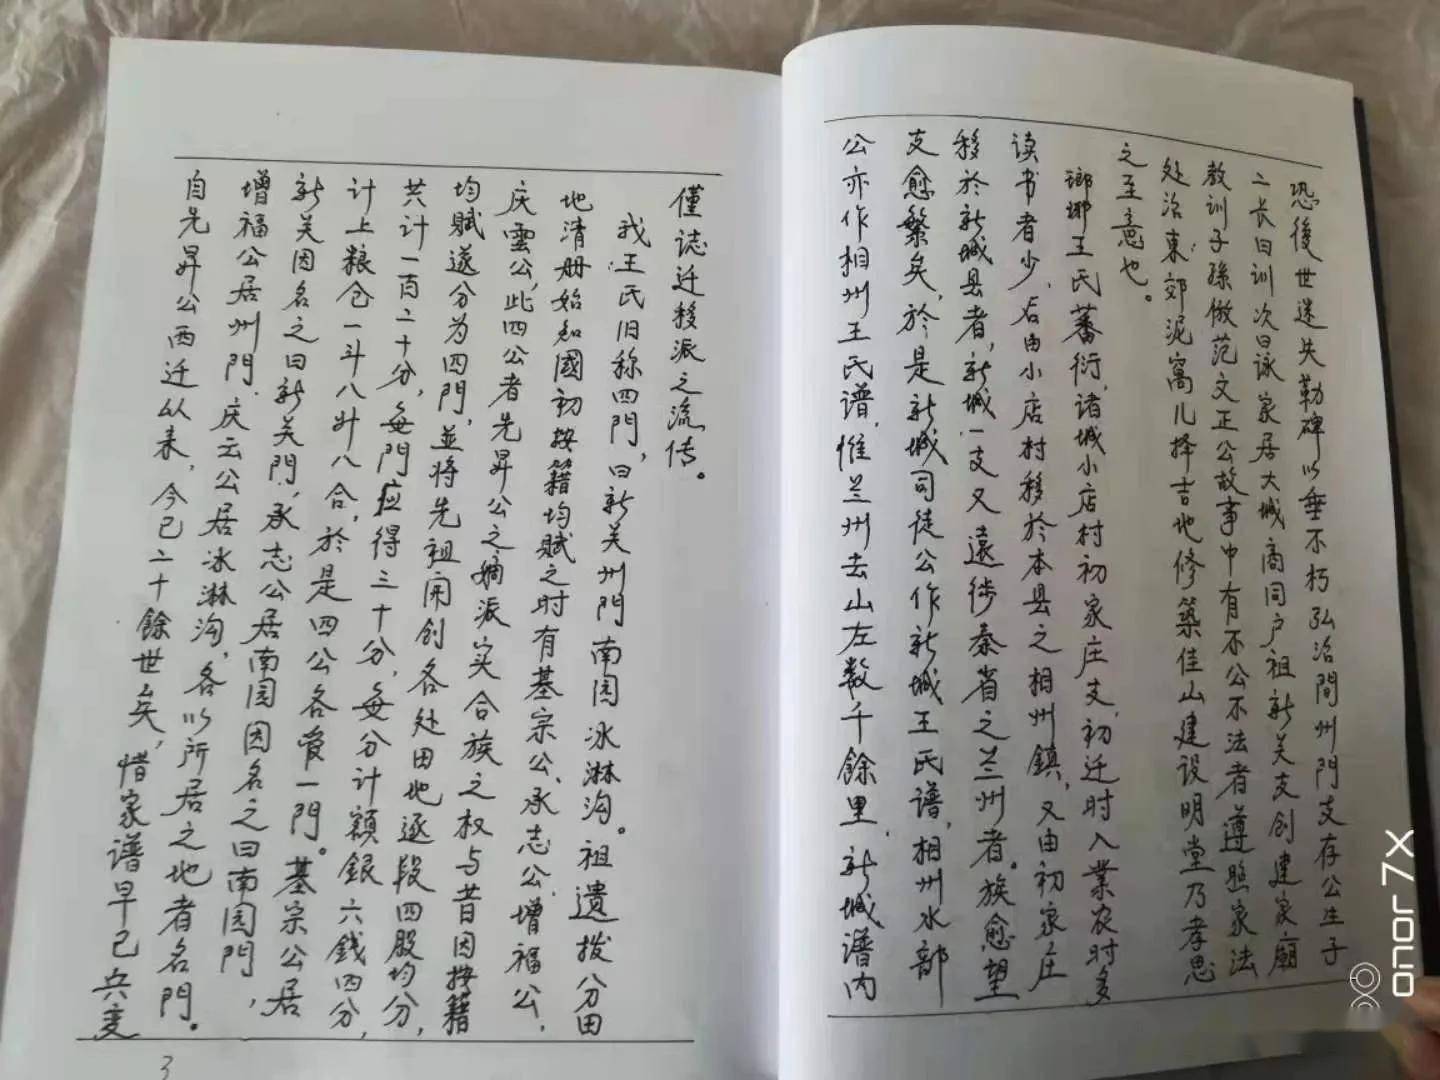 恐後世迷失勒碑以垂不朽弘治間州門支存公生子
二长曰训次曰詠家居大城商同户祖新关支创建家廟
教训子孫倣范文正公故事中有不公不法者遵照家法
处治東郊泥窩儿择吉地修築佳山建设明堂乃孝思
之至意也。
瑯琊王氏蕃衍，诸城小店村初家庄支，初迁时入業农时多
读书者少，后由小店村移於本县之相州鎮，又由初家庄
移於新城县者，新城一支又遠徙秦省之兰州者。族愈望
支愈繁矣，於是新城司徒公作新城王氏谱，相州水部
公亦作相州王氏谱，惟兰州去山左数千餘里，新城谱内
僅誌迁移派之流传。
我王氏旧称四門，曰新关州門南园冰淋沟。祖遗拨分田
地清册始知國初按籍均賦之时有基宗公、承志公、增福公、
庆雲公，此四公者先昇公之嫡派实合族之权与昔因按籍
均賦遂分为四門，並将先祖開创各处田地逐段四股均分，
共计一百二十分，每門应得三十分，每分计額銀六錢四分，
计上粮仓一斗八升八合，於是四公各管一門。基宗公居
新关因名之曰新关門，承志公居南园因名之曰南园門，
增福公居州門，庆云公居冰淋沟，各以所居之地者名門。
自先昇公西迁以来，今已二十餘世矣，惜家谱早已兵变
3
HONOR 7X